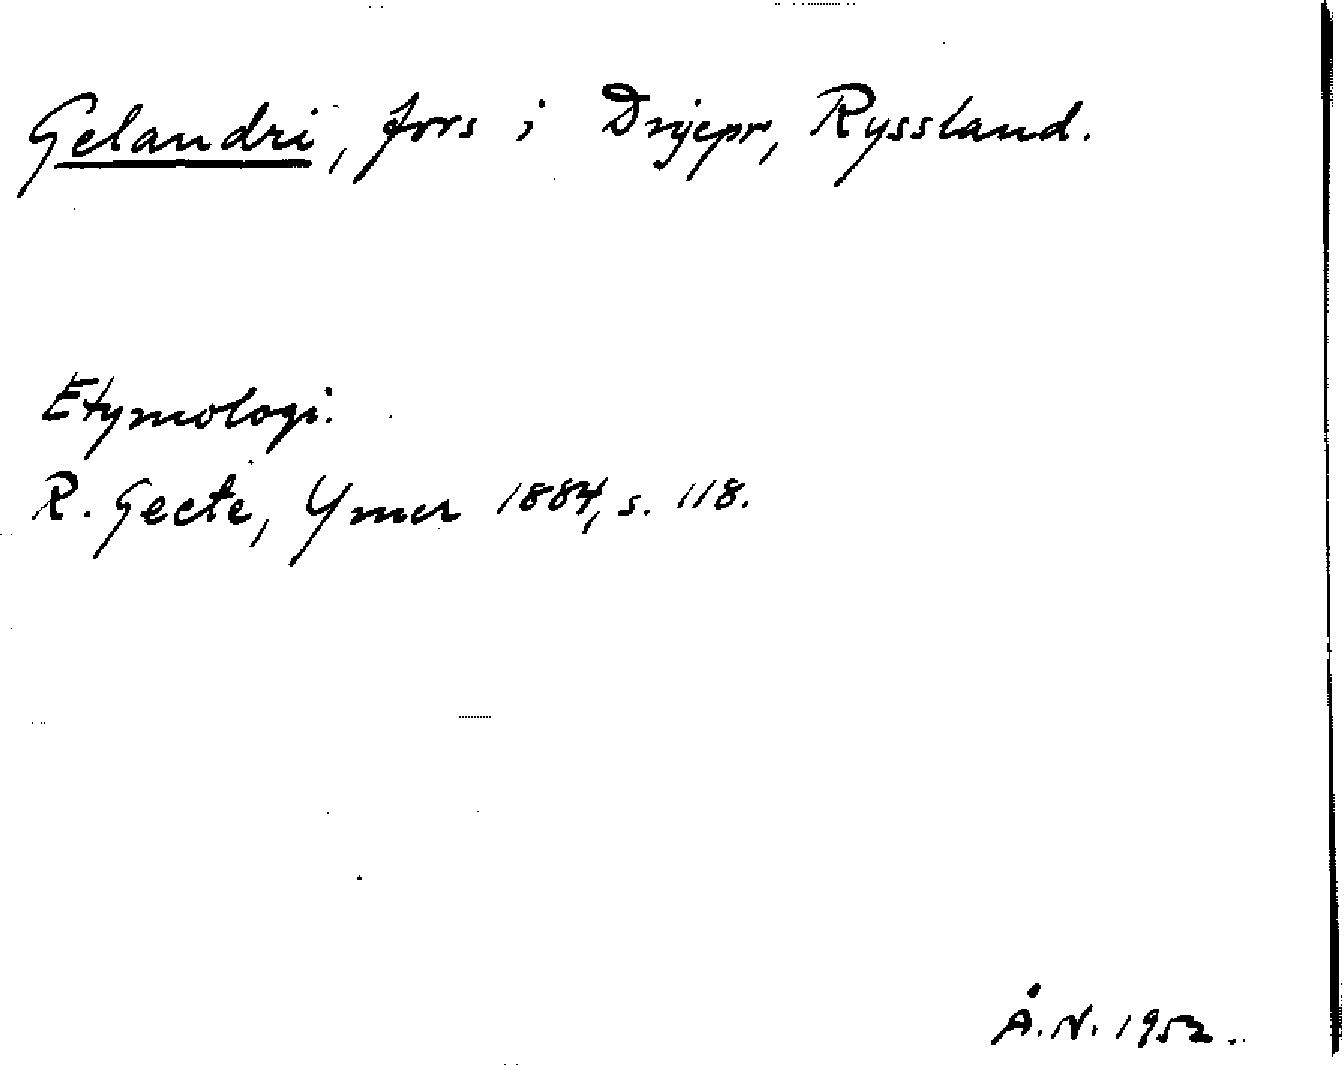 Gelandri, fors i Dnjepr, Ryssland.
Etymologi.
R. Geete, Ymer 1884, s. 118.
Å. N. 1952.